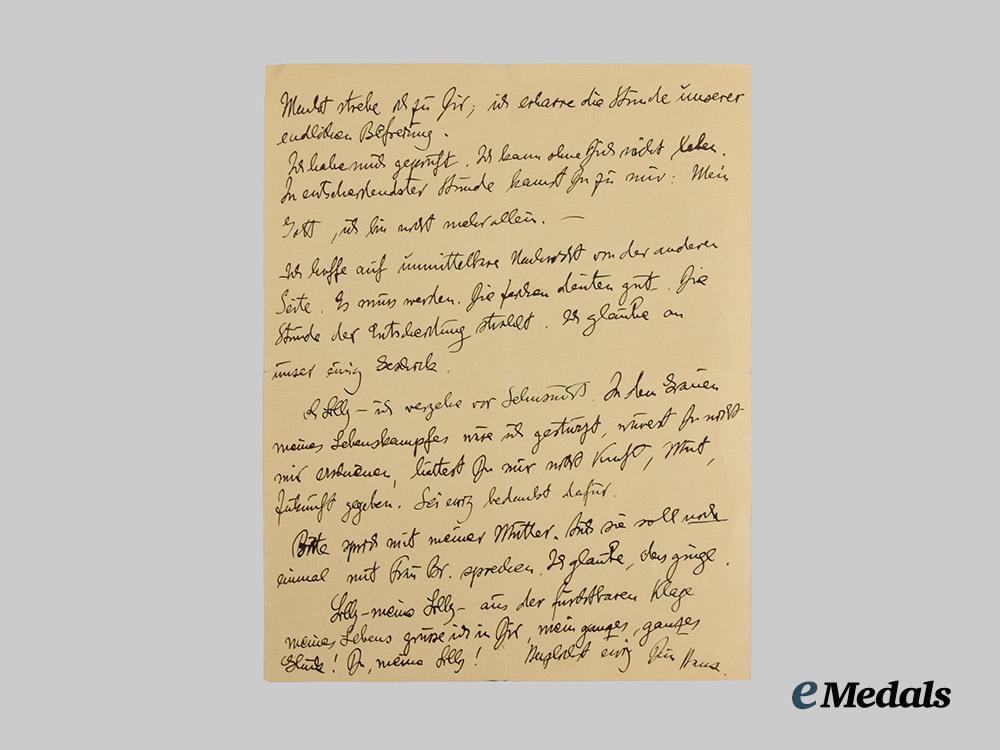 Macht strebe ich zu Dir; ich erharre die Stunde unserer
endlichen Befreiung.
Ich habe mich geprüft. Ich kann ohne Dich nicht leben.
In entscheidendster Stunde kamst Du zu mir: Mein
Gott, ich bin nicht mehr allein. —
Ich hoffe auf unmittelbare Nachricht von der anderen
Seite. Es muss werden. Die deuten gut. Die
Stunde der Entscheidung strahlt. Ich glaube an
unser ewig Geschick.
Lilly – ich vergehe vor Sehnsucht. In dem Grauen
meines Lebenskampfes wäre ich gestürzt, wärest Du nicht
mir erschienen, hättest Du mir nicht Kraft, Mut,
Zukunft gegeben. Sei ewig bedankt dafür.
Bitte sprich mit meiner Mutter. Und sie soll noch
einmal mit Frau Br. sprechen. Ich glaube, das ginge.
Lilly – meine Lilly – aus der furchtbaren Klage
meines Lebens grüsse ich in Dir mein ganzes, ganzes
Glück! Du, meine Lilly! ewig Dein Hans.
eMedals